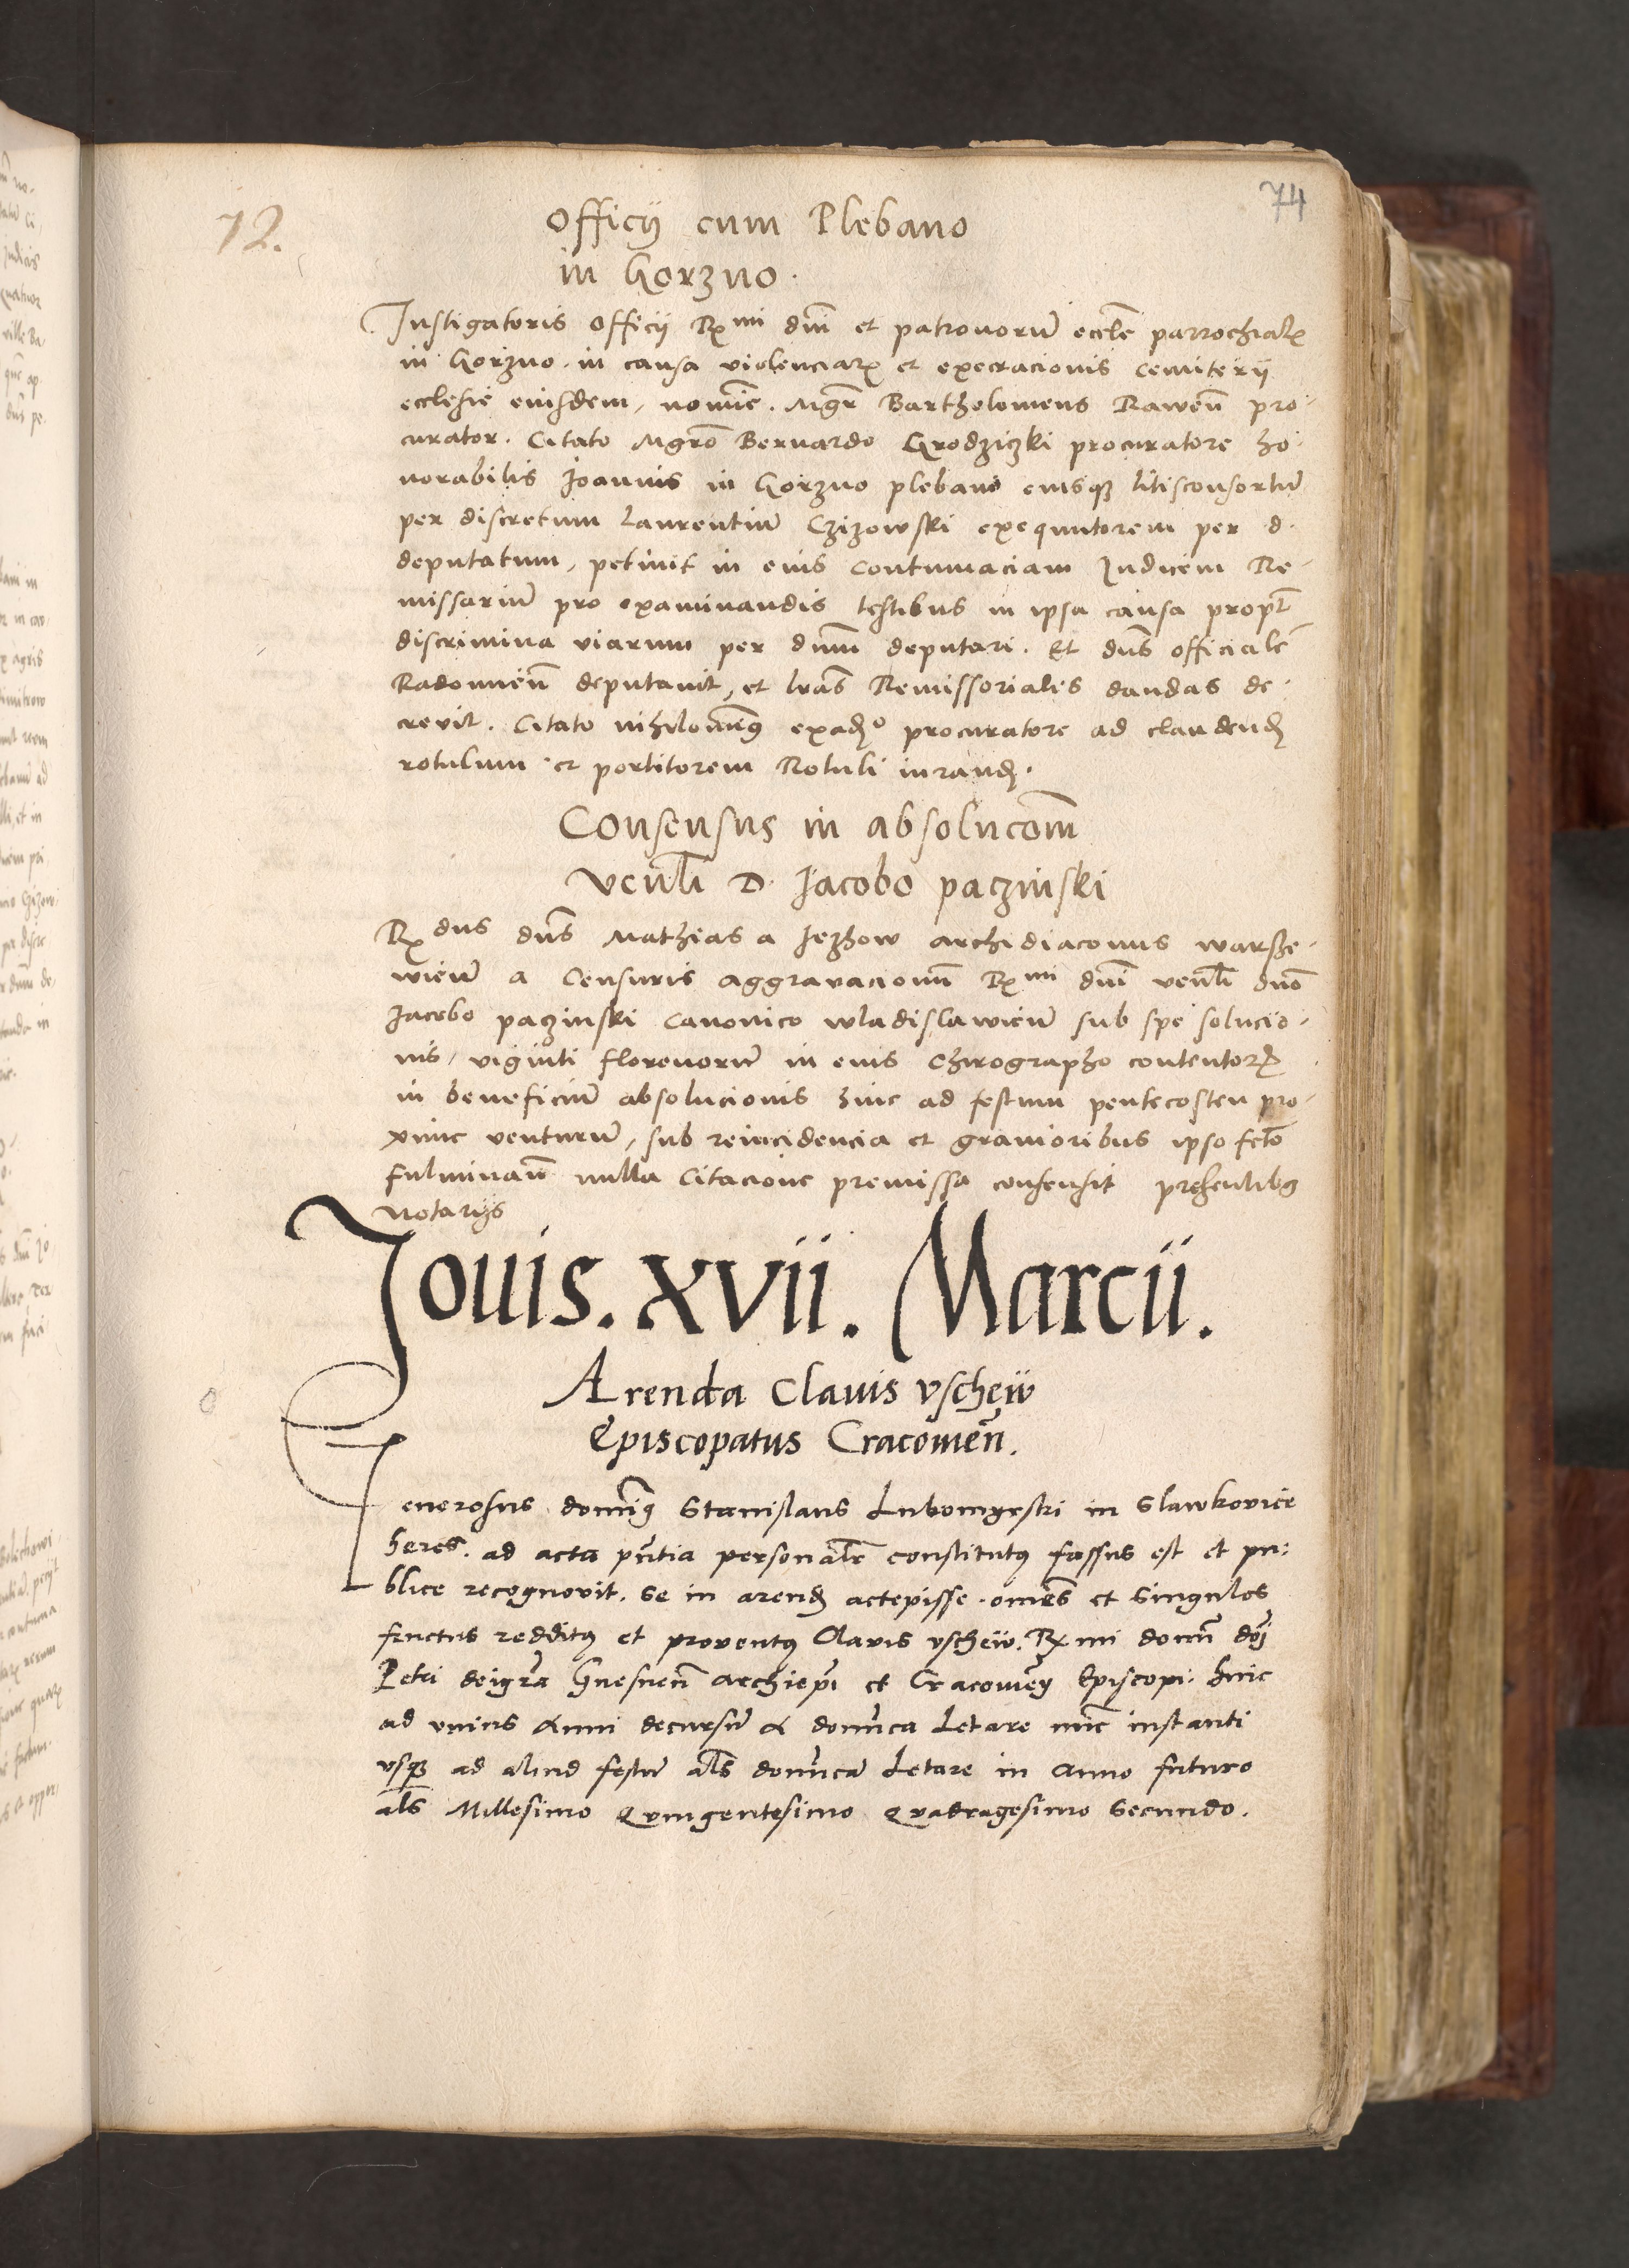 74
72.
Officij cum Plebano
in Gorzno.
Instigatoris officij Rmi dni et patronorum eccle parrochialis
in Gorzno in causa violenciarum et execracionis cemiterij
ecclesie eiusdem, nomine. Mgr Bartholomeus Rawen pro-
curator. Citato Mgro Bernardo Grodziczki procuratore ho-
norabilis Joannis in Gorzno plebani eiusque litisconsortum
per discretum Laurentium Czizowski exequutorem per d.
deputatum, petiuit in eius contumaciam Judicem Re-
missarium pro examinandis testibus in ipsa causa propter
discrimina viarum per dnum deputari. Et dns officialem
Radomien deputauit, et lras Remissoriales dandas de-
creuit. Citato nihilominus exado procuratore ad claudend
rotulum et portitorem Rotuli iurand.
Consensus in absolucom
venli D. Jacobo paczinski
Rdus dns Mathias a Jezhow archidiaconus warsche-
wien a Censuris aggrauacionum Rmi dni venli dno
Jacobo paczinski Canonico wladislawien sub spe solucio-
nis, viginti florenorum in eius Chirographo contentorum
in beneficium absolucionis hinc ad festum pentecosten pro-
xime venturum, sub reincidencia et grauioribus ipso fcto
fulminan nulla Citacione premissa consensit presentibus
notarijs
Jouis. xvii. Marcii.
Arenda Clauis vscheiw
Episcopatus Cracouien.
Generosus dominus Stanislaus Lubomyerski in Slawkovicze
heres. ad acta pntia personalr constitutus fassus est et pu-
blice recognouit. se in arend accepisse. omes et singulos
fructus redditus et prouentus Clauis vscheiw. Rmi domn doj
Petri deigra Gnesnen Archiepi et Cracouien Episcopi. hinc
ad vnius Anni decursum a domnca Letare nunc instanti
vsque ad aliud festum als domnicam Letare in Anno futuro
als Millesimo Quingentesimo Quadragesimo Secundo.